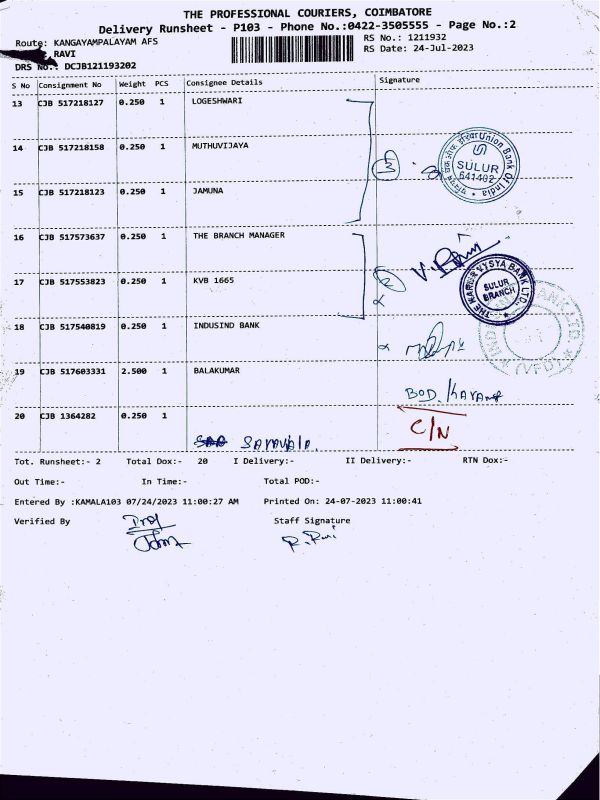 THE PROFESSIONAL COURIERS, COIMBATORE
Delivery Runsheet - P103 - Phone No.:0422-3505555 - Page No.:2
Route: KANGAYAMPALAYAM AFS
RS No.: 1211932
, RAVI
RS Date: 24-Jul-2023
DRS No.: DCJB121193202
S No Consignment No Weight PCS Consignee Details Signature
13 CJB 517218127 0.250 1 LOGESHWARI
14 CJB 517218158 0.250 1 MUTHUVIJAYA
3
Union Bank Of India
SULUR
641402
15 CJB 517218123 0.250 1 JAMUNA
16 CJB 517573637 0.250 1 THE BRANCH MANAGER
17 CJB 517553823 0.250 1 KVB 1665
2
THE KARUR VYSYA BANK LTD.
SULUR
BRANCH
18 CJB 517540819 0.250 1 INDUSIND BANK
BANK LTD.
19 CJB 517603331 2.500 1 BALAKUMAR
BOD.
20 CJB 1364282 0.250 1
C/N
Tot. Runsheet:- 2 Total Dox:- 20 I Delivery:- II Delivery:- RTN Dox:-
Out Time:- In Time:- Total POD:-
Entered By :KAMALA103 07/24/2023 11:00:27 AM Printed On: 24-07-2023 11:00:41
Verified By Staff Signature